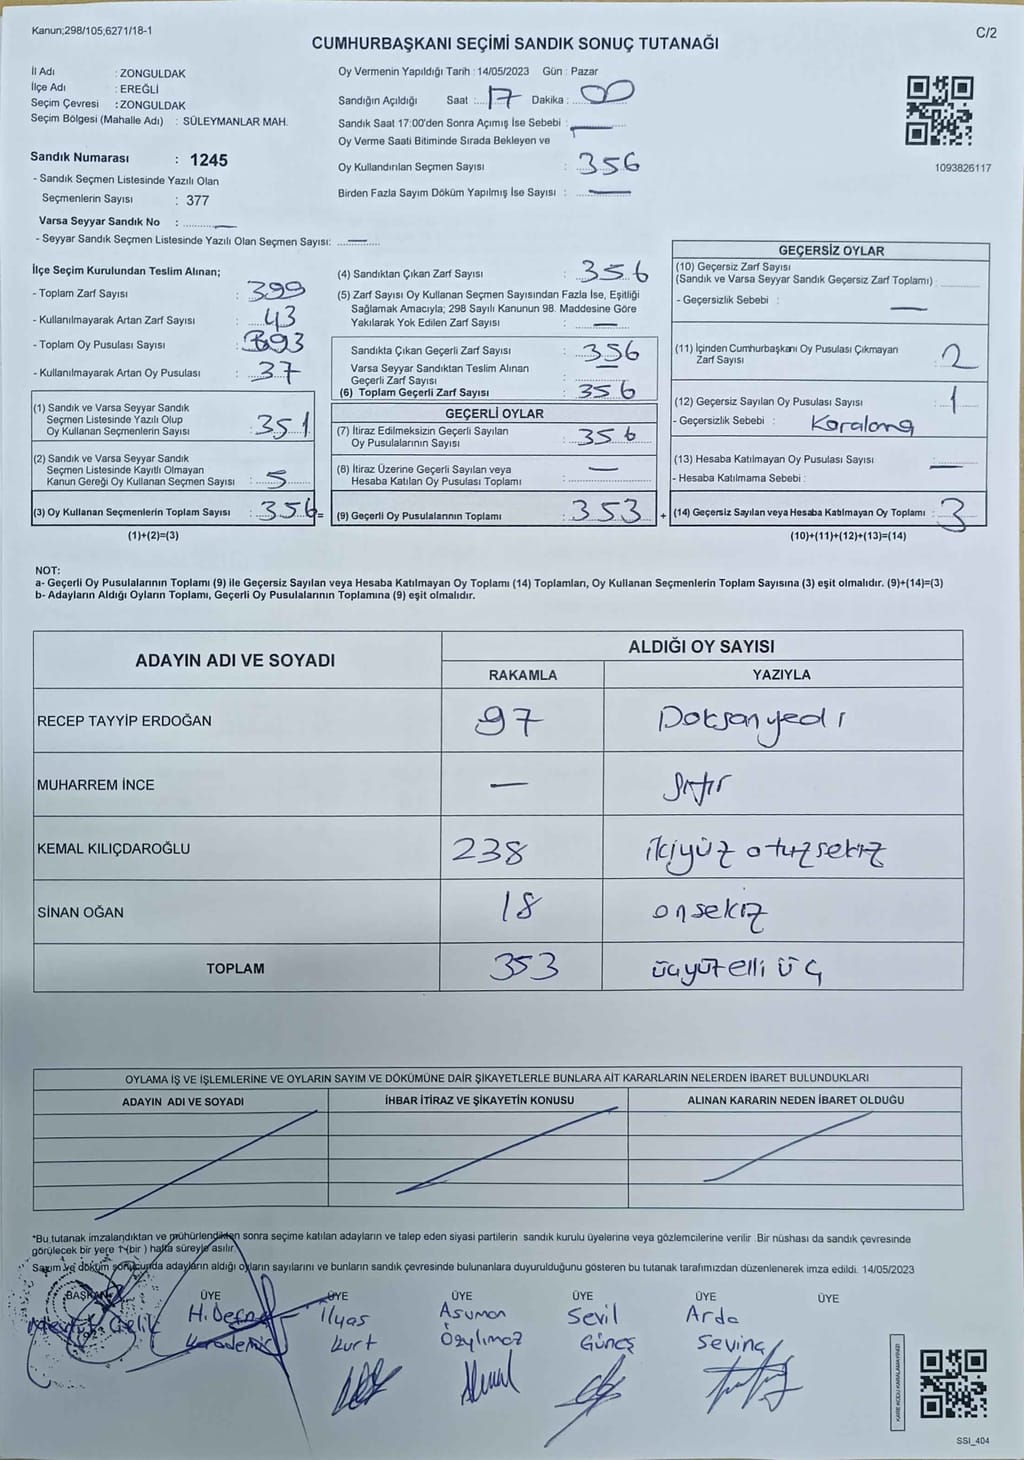 Kanun;298/105,6271/18-1
C/2
CUMHURBAŞKANI SEÇİMİ SANDIK SONUÇ TUTANAĞI
İl Adı : ZONGULDAK
İlçe Adı : EREĞLİ
Seçim Çevresi : ZONGULDAK
Seçim Bölgesi (Mahalle Adı) : SÜLEYMANLAR MAH.
Sandık Numarası : 1245
- Sandık Seçmen Listesinde Yazılı Olan
Seçmenlerin Sayısı : 377
Varsa Seyyar Sandık No : —
- Seyyar Sandık Seçmen Listesinde Yazılı Olan Seçmen Sayısı: —
Oy Vermenin Yapıldığı Tarih : 14/05/2023 Gün : Pazar
Sandığın Açıldığı Saat : 17 Dakika : 00
Sandık Saat 17:00'den Sonra Açımış İse Sebebi : —
Oy Verme Saati Bitiminde Sırada Bekleyen ve
Oy Kullandırılan Seçmen Sayısı : 356
Birden Fazla Sayım Döküm Yapılmış İse Sayısı : —
1093826117
İlçe Seçim Kurulundan Teslim Alınan;
- Toplam Zarf Sayısı : 399
- Kullanılmayarak Artan Zarf Sayısı : 43
- Toplam Oy Pusulası Sayısı : 393
- Kullanılmayarak Artan Oy Pusulası : 37
(1) Sandık ve Varsa Seyyar Sandık
Seçmen Listesinde Yazılı Olup
Oy Kullanan Seçmenlerin Sayısı : 351
(2) Sandık ve Varsa Seyyar Sandık
Seçmen Listesinde Kayıtlı Olmayan
Kanun Gereği Oy Kullanan Seçmen Sayısı : 5
(3) Oy Kullanan Seçmenlerin Toplam Sayısı : 356 =
(1)+(2)=(3)
(4) Sandıktan Çıkan Zarf Sayısı : 356
(5) Zarf Sayısı Oy Kullanan Seçmen Sayısından Fazla İse, Eşitliği
Sağlamak Amacıyla; 298 Sayılı Kanunun 98. Maddesine Göre
Yakılarak Yok Edilen Zarf Sayısı : —
Sandıkta Çıkan Geçerli Zarf Sayısı : 356
Varsa Seyyar Sandıktan Teslim Alınan
Geçerli Zarf Sayısı : —
(6) Toplam Geçerli Zarf Sayısı : 356
GEÇERLİ OYLAR
(7) İtiraz Edilmeksizin Geçerli Sayılan
Oy Pusulalarının Sayısı : 356
(8) İtiraz Üzerine Geçerli Sayılan veya
Hesaba Katılan Oy Pusulası Toplamı : —
(9) Geçerli Oy Pusulalarının Toplamı : 353 +
GEÇERSİZ OYLAR
(10) Geçersiz Zarf Sayısı
(Sandık ve Varsa Seyyar Sandık Geçersiz Zarf Toplamı) :
- Geçersizlik Sebebi : —
(11) İçinden Cumhurbaşkanı Oy Pusulası Çıkmayan
Zarf Sayısı : 2
(12) Geçersiz Sayılan Oy Pusulası Sayısı : 1
- Geçersizlik Sebebi : Karalama
(13) Hesaba Katılmayan Oy Pusulası Sayısı : —
- Hesaba Katılmama Sebebi :
(14) Geçersiz Sayılan veya Hesaba Katılmayan Oy Toplamı : 3
(10)+(11)+(12)+(13)=(14)
NOT:
a- Geçerli Oy Pusulalarının Toplamı (9) ile Geçersiz Sayılan veya Hesaba Katılmayan Oy Toplamı (14) Toplamları, Oy Kullanan Seçmenlerin Toplam Sayısına (3) eşit olmalıdır. (9)+(14)=(3)
b- Adayların Aldığı Oyların Toplamı, Geçerli Oy Pusulalarının Toplamına (9) eşit olmalıdır.
ADAYIN ADI VE SOYADI ALDIĞI OY SAYISI
RAKAMLA YAZIYLA
RECEP TAYYİP ERDOĞAN 97 Doksanyedi
MUHARREM İNCE — Sıfır
KEMAL KILIÇDAROĞLU 238 ikiyüz otuzsekiz
SİNAN OĞAN 18 onsekiz
TOPLAM 353 üçyüzelli üç
OYLAMA İŞ VE İŞLEMLERİNE VE OYLARIN SAYIM VE DÖKÜMÜNE DAİR ŞİKAYETLERLE BUNLARA AİT KARARLARIN NELERDEN İBARET BULUNDUKLARI
ADAYIN ADI VE SOYADI İHBAR İTİRAZ VE ŞİKAYETİN KONUSU ALINAN KARARIN NEDEN İBARET OLDUĞU
*Bu tutanak imzalandıktan ve mühürlendikten sonra seçime katılan adayların ve talep eden siyasi partilerin sandık kurulu üyelerine veya gözlemcilerine verilir. Bir nüshası da sandık çevresinde
görülecek bir yere 1 (bir ) hafta süreyle asılır.
Sayım ve döküm sonucunda adayların aldığı oyların sayılarını ve bunların sandık çevresinde bulunanlara duyurulduğunu gösteren bu tutanak tarafımızdan düzenlenerek imza edildi. 14/05/2023
BAŞKAN ÜYE ÜYE ÜYE ÜYE ÜYE ÜYE
Mevlüt Çelik H. Berna İlyas Asuman Sevil Arda
Karademir Kurt Özyılmaz Güneş Sevinç
KARE KODU KARALAMAYINIZ!
SSI_404